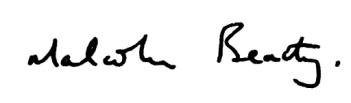 Malcolm Beatty.